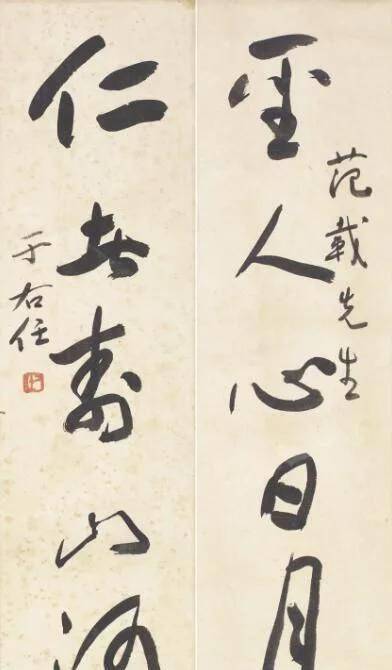 范载先生
圣人心日月
仁者寿山河
于右任